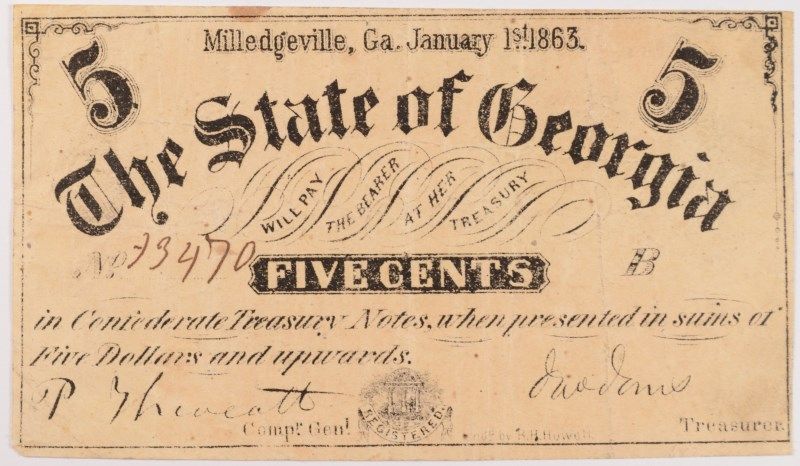 Milledgeville, Ga. January 1st. 1863.
5
5
The State of Georgia
WILL PAY
THE BEARER
AT HER
TREASURY
No 13470
FIVE CENTS
B
in Confederate Treasury Notes, when presented in sums of
Five Dollars and upwards.
P Thweatt
Jno Jones
Compr. Genl.
REGISTERED
by R.H. Howell.
Treasurer